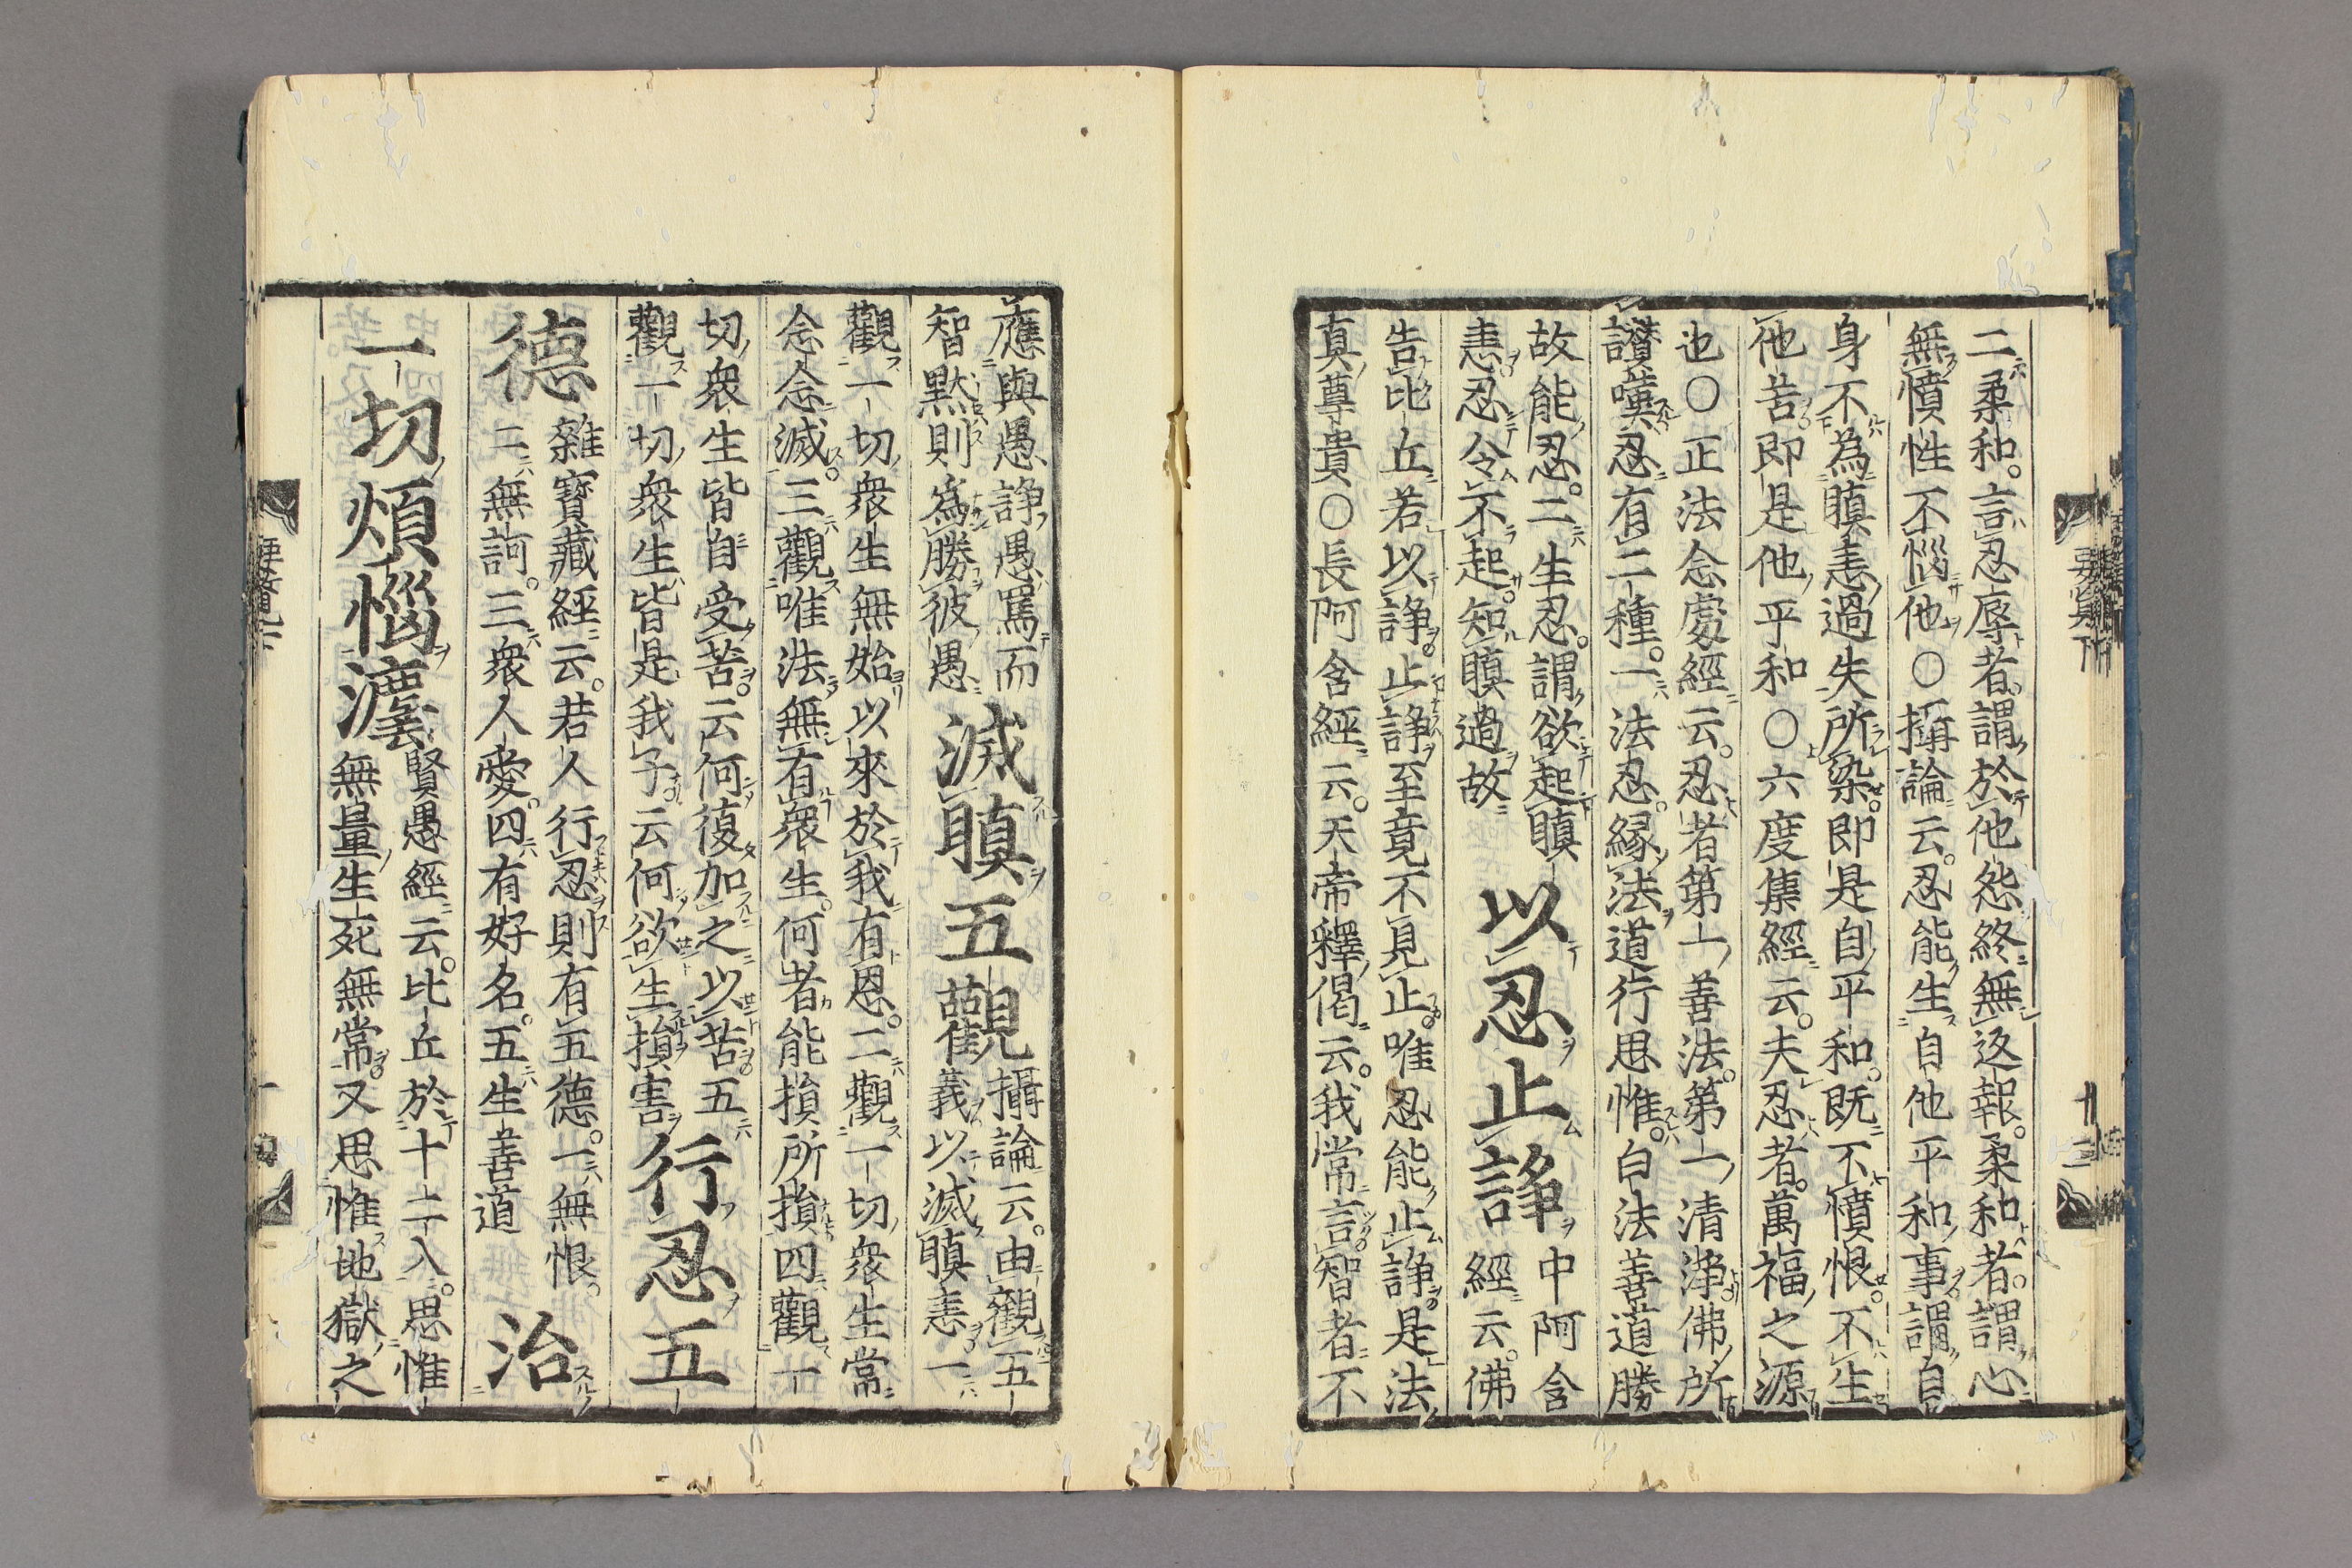 二柔和。言忍辱者。謂於他怨終無返報。柔和者。謂心
無憤性不惱他〇攝論云。忍能生自他平和事。謂自
身不為瞋恚過失所染。即是自平和。既不憤恨。不生
他苦。即是他平和〇六度集經云。夫忍者。萬福之源
也〇正法念處經云。忍者第一善法。第一清淨佛所
讃嘆忍有二種。一法忍。緣法道行思惟。白法善道勝
故能忍。二生忍。謂欲起瞋
恚。忍令不起。知瞋過故
以忍止諍
中阿含
經云。佛
告比丘若以諍止諍至竟不見止。唯忍能止諍。是法
真尊貴〇長阿含經云。天帝釋偈云。我常言。智者不
應與愚諍愚罵而
智默則為勝彼愚
滅瞋五觀
攝論云。由觀五
義以滅瞋恚一
觀一切衆生無始以來於我有恩。二觀一切衆生常
念念滅。三觀唯法無有衆生。何者能損所損四觀一
切衆生皆自受苦。云何復加之以苦。五
觀一切衆生皆是我子。云何欲生損害
行忍五
德
雜寶藏經云。若人行忍則有五德。一無恨。
二無訶。三衆人愛。四有好名。五生善道
治
一切煩惱瀼
賢愚經云。比丘於十二入。思惟
無量生死無常。又思惟地獄之